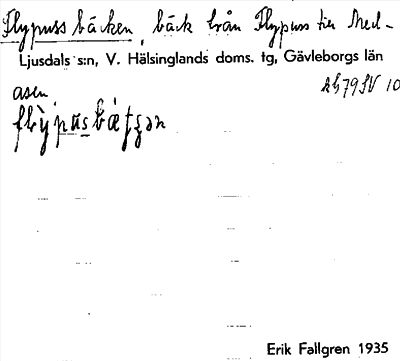 Flypussbäcken, bäck från Flypuss till Med-
Ljusdals s:n, V. Hälsinglands doms. tg, Gävleborgs län
asen.
Erik Fallgren 1935